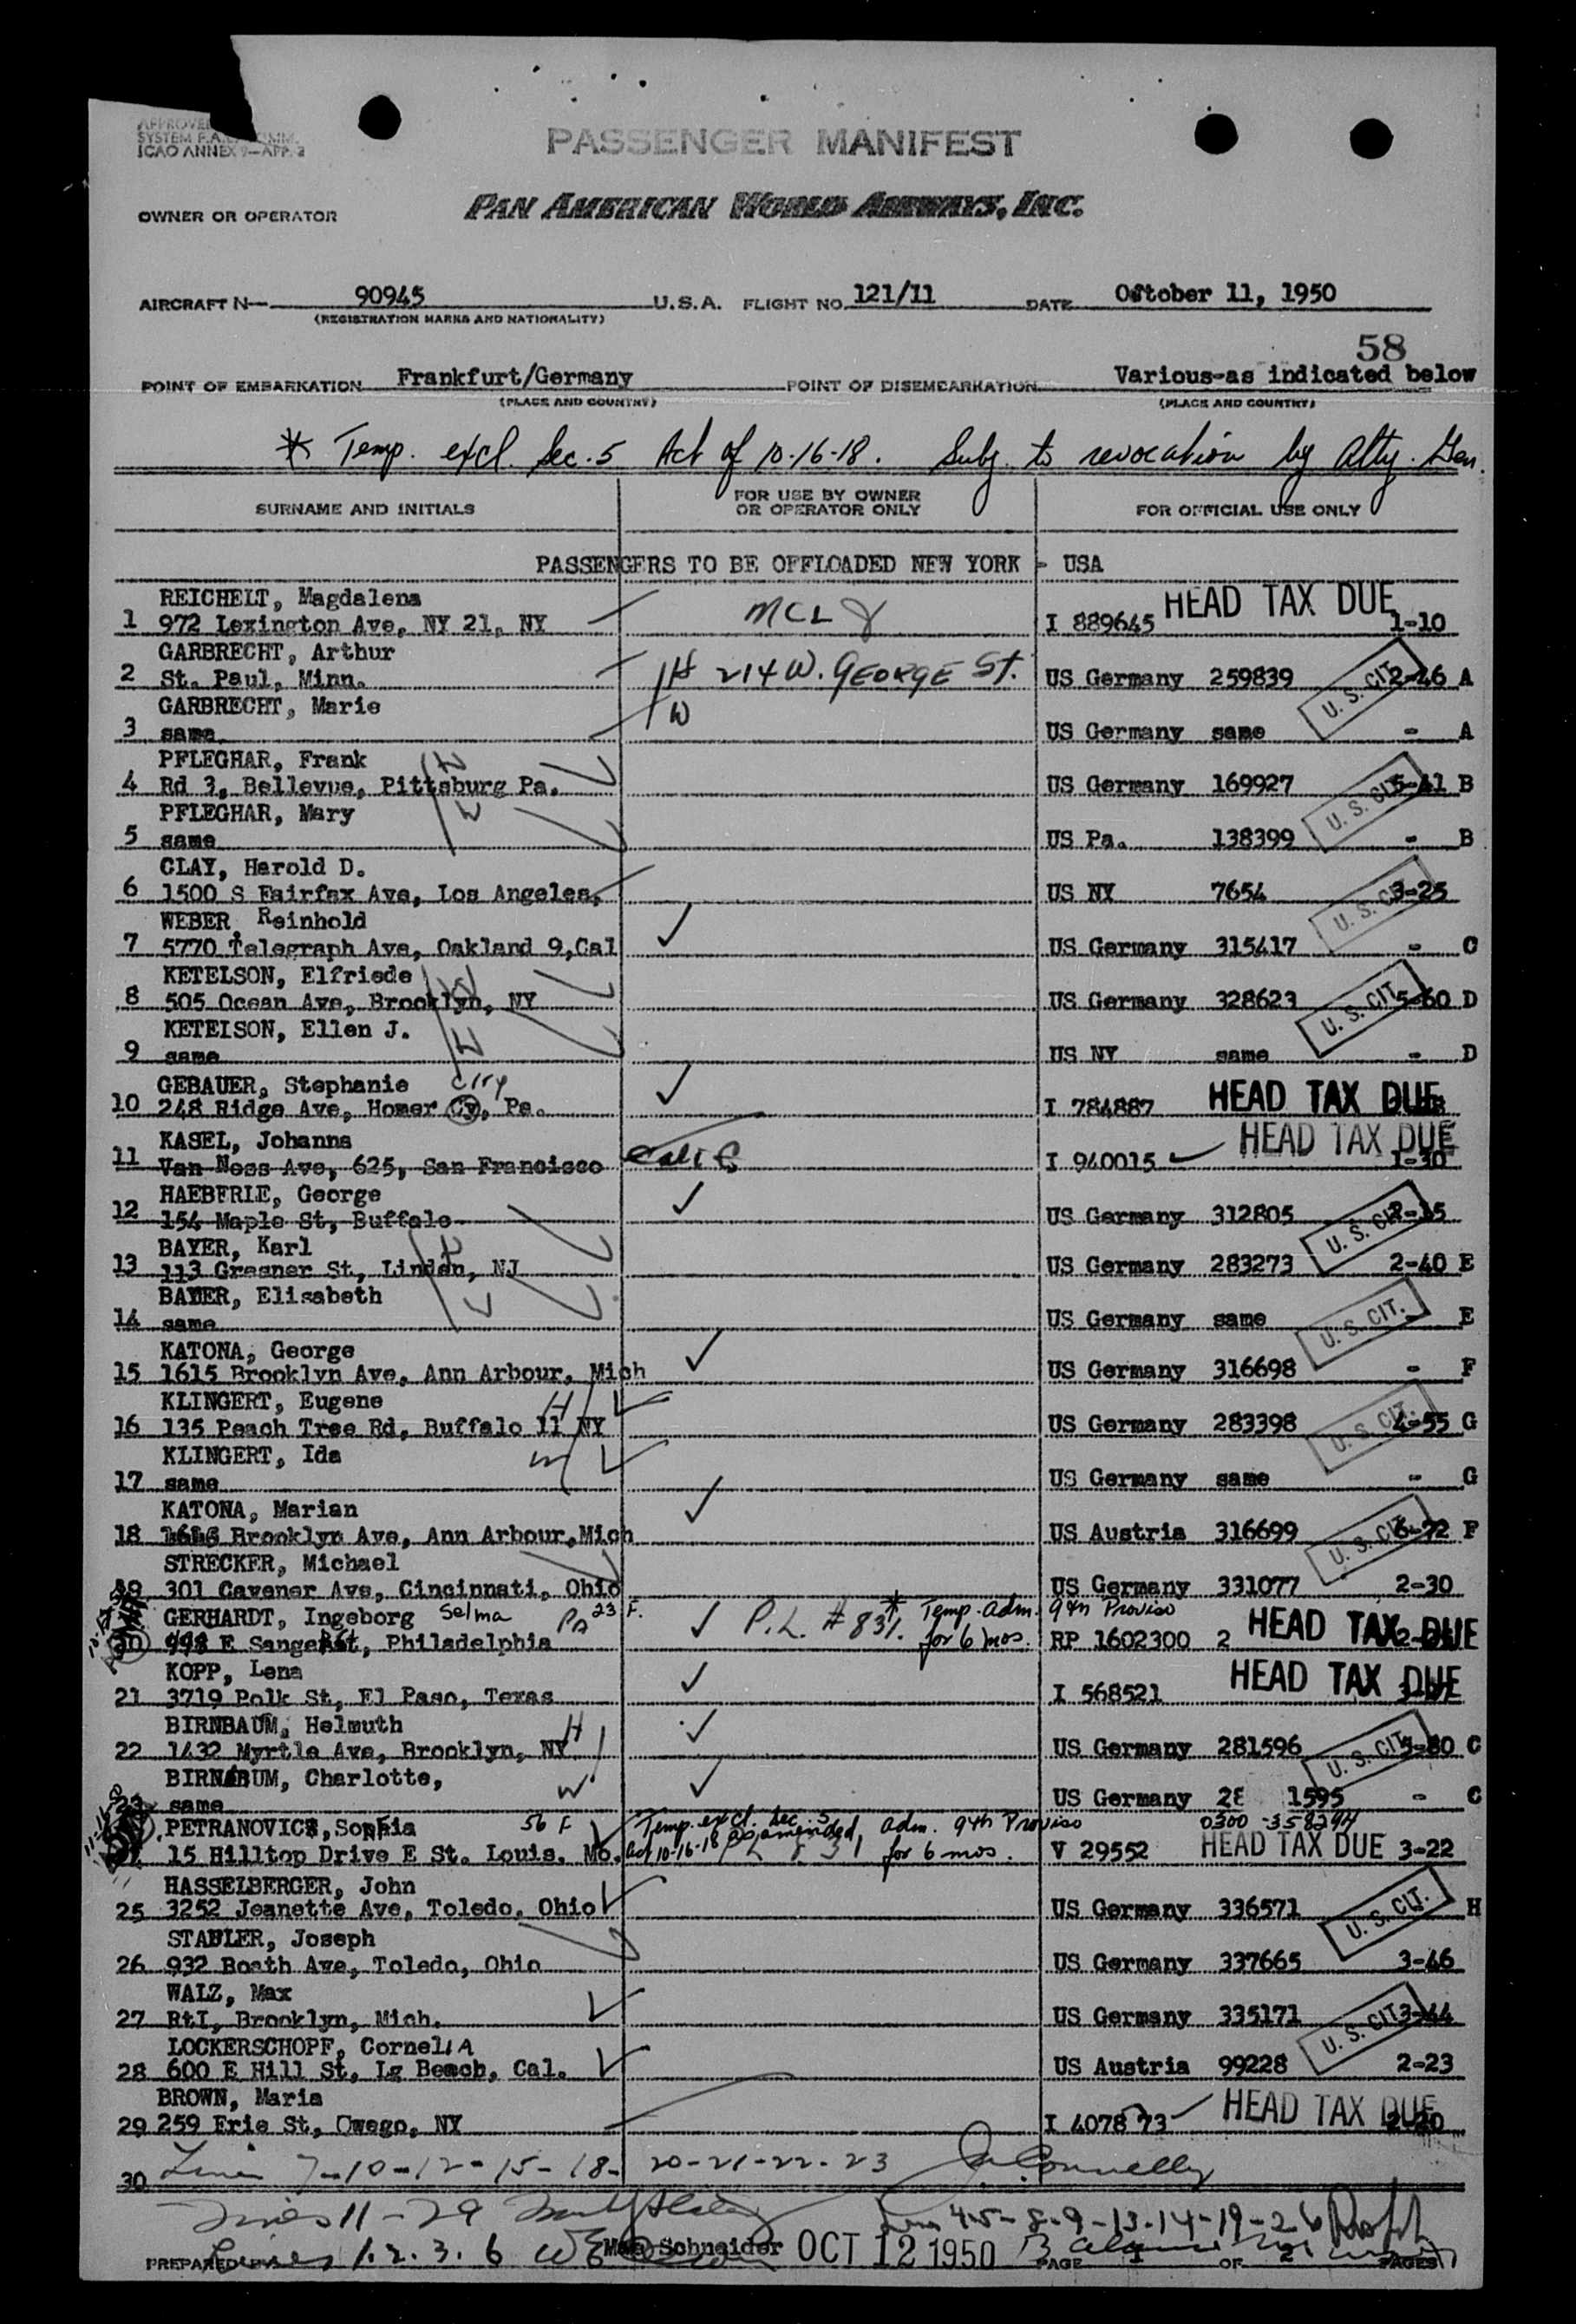 APPROVED
SYSTEM F.A. COMM.
ICAO ANNEX 9—APP. 2
PASSENGER MANIFEST
OWNER OR OPERATOR PAN AMERICAN WORLD AIRWAYS, INC.
AIRCRAFT N— 90945 U.S.A. FLIGHT NO. 121/11 DATE October 11, 1950
(REGISTRATION MARKS AND NATIONALITY)
58
POINT OF EMBARKATION Frankfurt/Germany POINT OF DISEMBARKATION Various-as indicated below
(PLACE AND COUNTRY) (PLACE AND COUNTRY)
* Temp. excl. Sec. 5 Act of 10-16-18. Subj. to revocation by Atty. Gen.
SURNAME AND INITIALS FOR USE BY OWNER OR OPERATOR ONLY FOR OFFICIAL USE ONLY
PASSENGERS TO BE OFFLOADED NEW YORK - USA
REICHELT, Magdalena MCL HEAD TAX DUE
1 972 Lexington Ave, NY 21, NY I 889645 1-10
GARBRECHT, Arthur
2 St. Paul, Minn. H 214 W. GEORGE St. US Germany 259839 U. S. CIT. 2-46 A
GARBRECHT, Marie W
3 same US Germany same - A
PFLEGHAR, Frank H
4 Rd 3, Bellevue, Pittsburg Pa. US Germany 169927 U. S. CIT. 5-41 B
PFLEGHAR, Mary W
5 same US Pa. 138399 - B
CLAY, Harold D.
6 1500 S Fairfax Ave, Los Angeles, US NY 7654 3-25
WEBER, Reinhold U. S. CIT.
7 5770 Telegraph Ave, Oakland 9,Cal US Germany 315417 - C
KETELSON, Elfriede
8 505 Ocean Ave, Brooklyn, NY US Germany 328623 U. S. CIT. 5-60 D
KETELSON, Ellen J.
9 same US NY same - D
GEBAUER, Stephanie City
10 248 Ridge Ave, Homer Cy, Pa. I 784887 HEAD TAX DUE
KASEL, Johanna HEAD TAX DUE
11 Van Ness Ave, 625, San Francisco Calif I 940015 1-30
HAEBERLE, George
12 154 Maple St, Buffalo US Germany 312805 U. S. CIT. 2-15
BAYER, Karl H
13 113 Gresner St, Linden, NJ US Germany 283273 2-40 E
BAYER, Elisabeth
14 same US Germany same U. S. CIT. E
KATONA, George
15 1615 Brooklyn Ave, Ann Arbour, Mich US Germany 316698 - F
KLINGERT, Eugene H
16 135 Peach Tree Rd, Buffalo 11 NY US Germany 283398 U. S. CIT. 4-55 G
KLINGERT, Ida W
17 same US Germany same - G
KATONA, Marian
18 1615 Brooklyn Ave, Ann Arbour,Mich US Austria 316699 U. S. CIT. 6-72 F
STRECKER, Michael
19 301 Cavener Ave, Cincinnati, Ohio US Germany 331077 2-30
GERHARDT, Ingeborg Selma 23 F. P.L. # 831. * Temp. adm. 9th Proviso
20 E Sanger St, Philadelphia Pa for 6 mos. RP 1602300 2 HEAD TAX DUE
KOPP, Lena
21 3719 Polk St, El Paso, Texas I 568521 HEAD TAX DUE
BIRNBAUM, Helmuth H
22 1432 Myrtle Ave, Brooklyn, NY US Germany 281596 U. S. CIT. 5-80 C
BIRNBAUM, Charlotte, W
23 same US Germany 28 1595 - C
PETRANOVICS, Sophia 56 F Temp. excl. Sec. 5 adm. 9th Proviso 0300 -358294
15 Hilltop Drive E St. Louis, Mo. Act 10-16-18 as amended PL 831 for 6 mos. V 29552 HEAD TAX DUE 3-22
HASSELBERGER, John
25 3252 Jeanette Ave, Toledo, Ohio US Germany 336571 U. S. CIT. H
STADLER, Joseph
26 932 Boath Ave, Toledo, Ohio US Germany 337665 3-46
WALZ, Max
27 RtI, Brooklyn, Mich. US Germany 335171 U. S. CIT. 3-44
LOCKERSCHOPF, CornelIA
28 600 E Hill St, Lg Beach, Cal. US Austria 99228 2-23
BROWN, Maria
29 259 Erie St, Owego, NY I 4078 73 HEAD TAX DUE 2-20
30 Lines 7-10-12-15-18-20-21-22-23 Connelly
Lines 11-29 4-5-8-9-13-14-19-26
Lines 1.2.3.6
PREPARED BY Schneider OCT 12 1950 PAGE 1 OF 2 PAGES